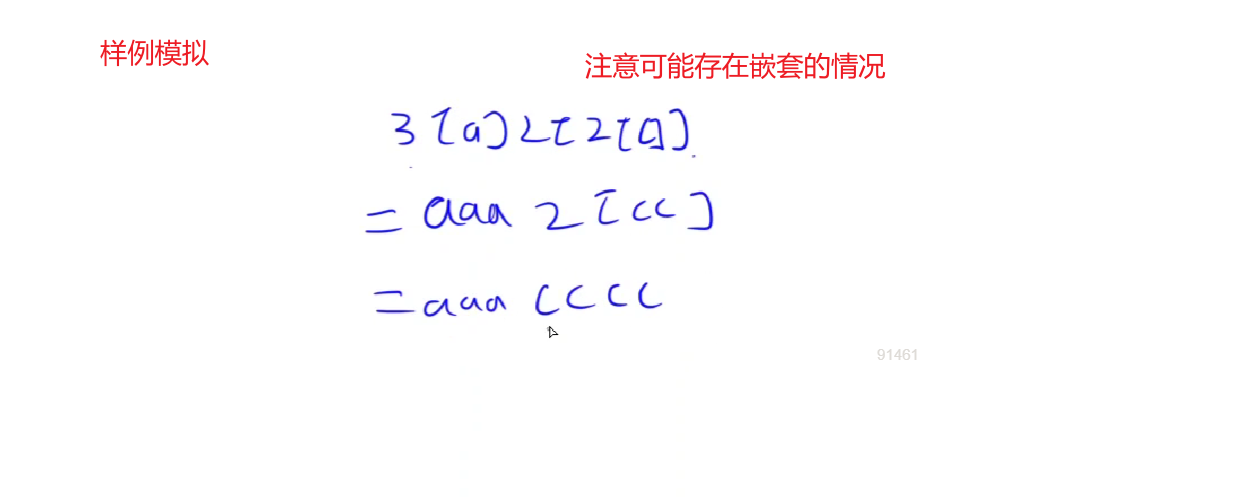 样例模拟
注意可能存在嵌套的情况
3[a]2[2[c]]
= aaa 2[cc]
= aaa cccc
91461